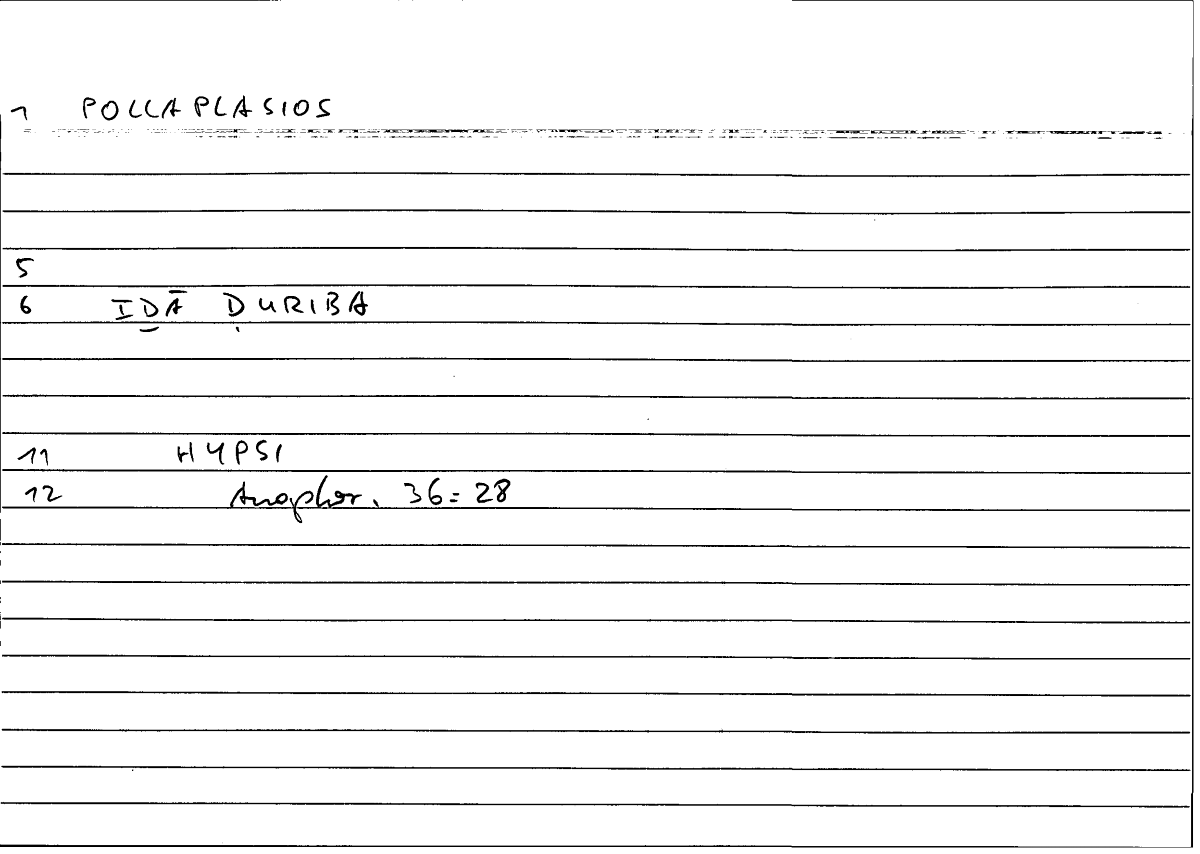 1 POLLAPLASIOS
5
6 I̲D̲Ā ḌURIBA
11 HYPSI
12 Anaphor. 36=28